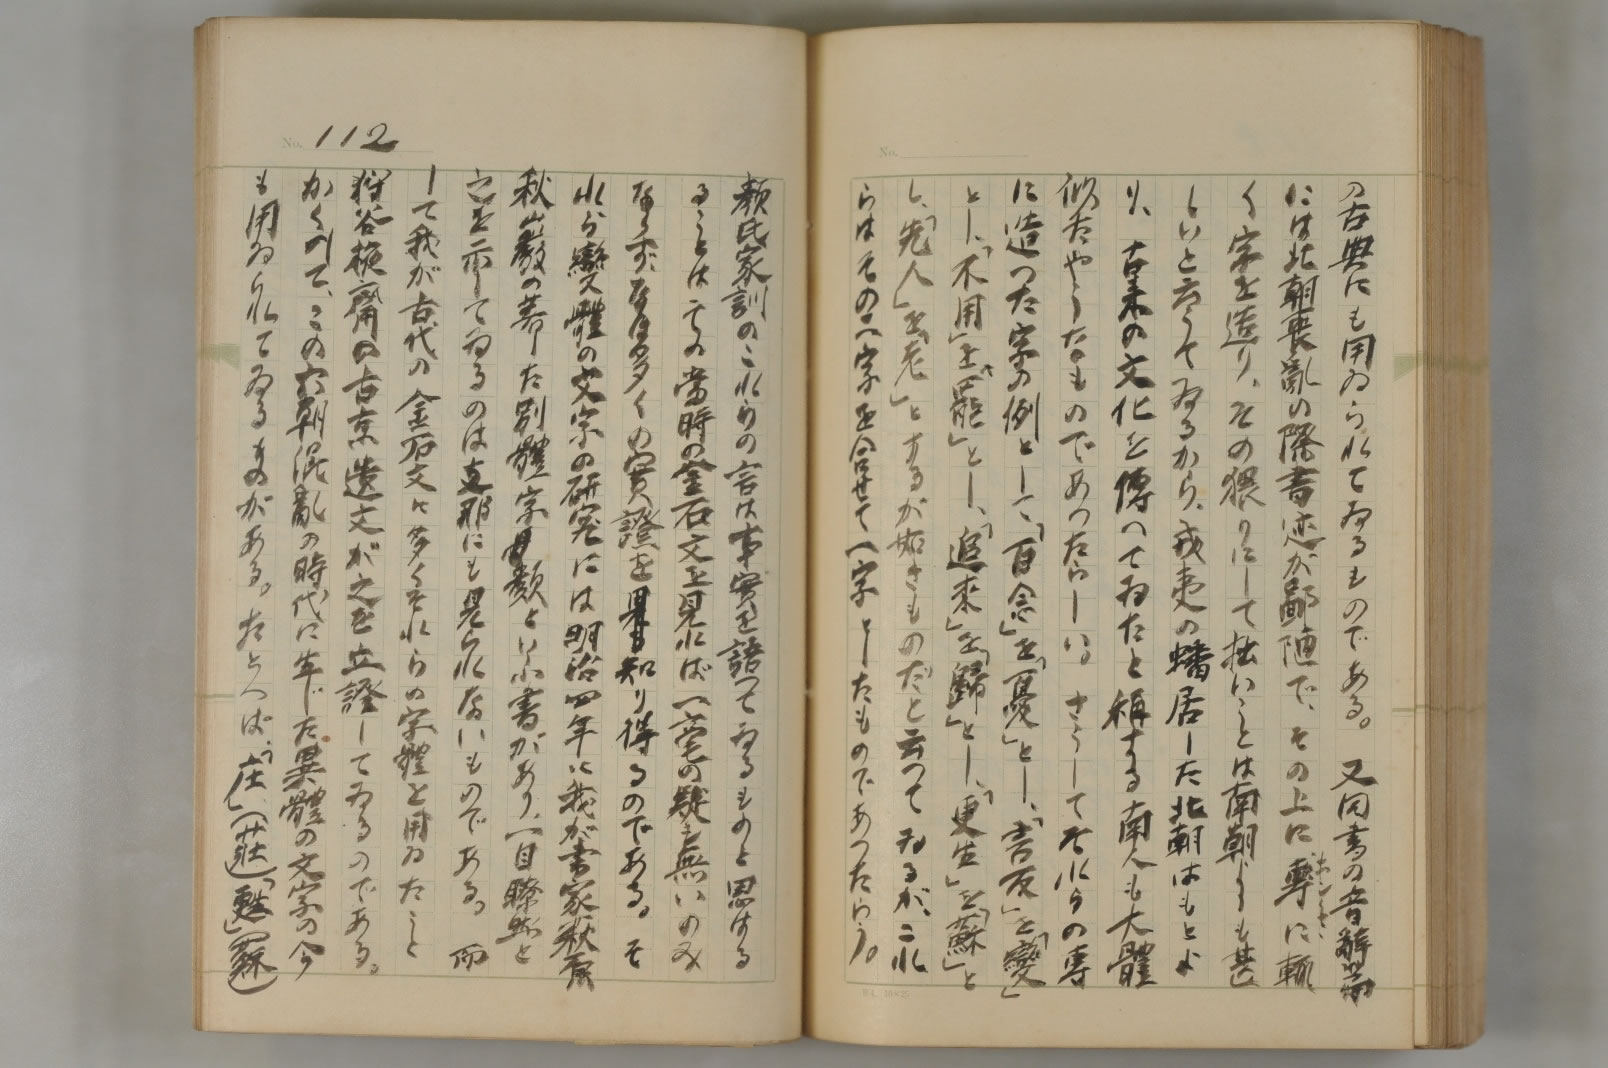 の古典にも用ゐられてゐるものである。又同書の音辭篇
には北朝喪亂の際書迹が鄙陋で、その上に專に輒
く字を造り、その猥りにして拙いことは南朝よりも甚
しいと言うてゐるから、戎夷の蟠居した北朝はもとよ
り、古来の文化を傳へてゐたと稱する南人も大體
似たやうなものであつたらしい。さうしてそれらの專
に造つた字の例として、「百念」を「憂」とし、「言反」を「變」
とし、「不用」を「罷」とし、「追来」を「歸」とし、「更生」を「蘇」と
し、「先人」を「老」とするが如きものだと云つてゐるが、これ
らはその二字を合せて一字としたものであつたらう。
No.
No. 112
顏氏家訓のこれらの言は事實を語つてゐるものと思はる
ることはその當時の金石文を見れば一毫の疑も無いのみ
ならず、なほ多くの實證を知り得るのである。そ
れら變體の文字の研究には明治四年に我が書家秋
秋山巌の著した別體字類といふ書があり、一目瞭然と
之を示してゐるのは支那にも見られないものである。而
して我が古代の金石文に多くそれらの字體を用ゐたこと
狩谷棭齋の古京遺文が之を立證してゐるのである。
かくりて、この六朝混亂の時代に生じた異體の文字の今
も用ゐられてゐるものがある。たとへば、「庄」(莊)「甦」(蘇)